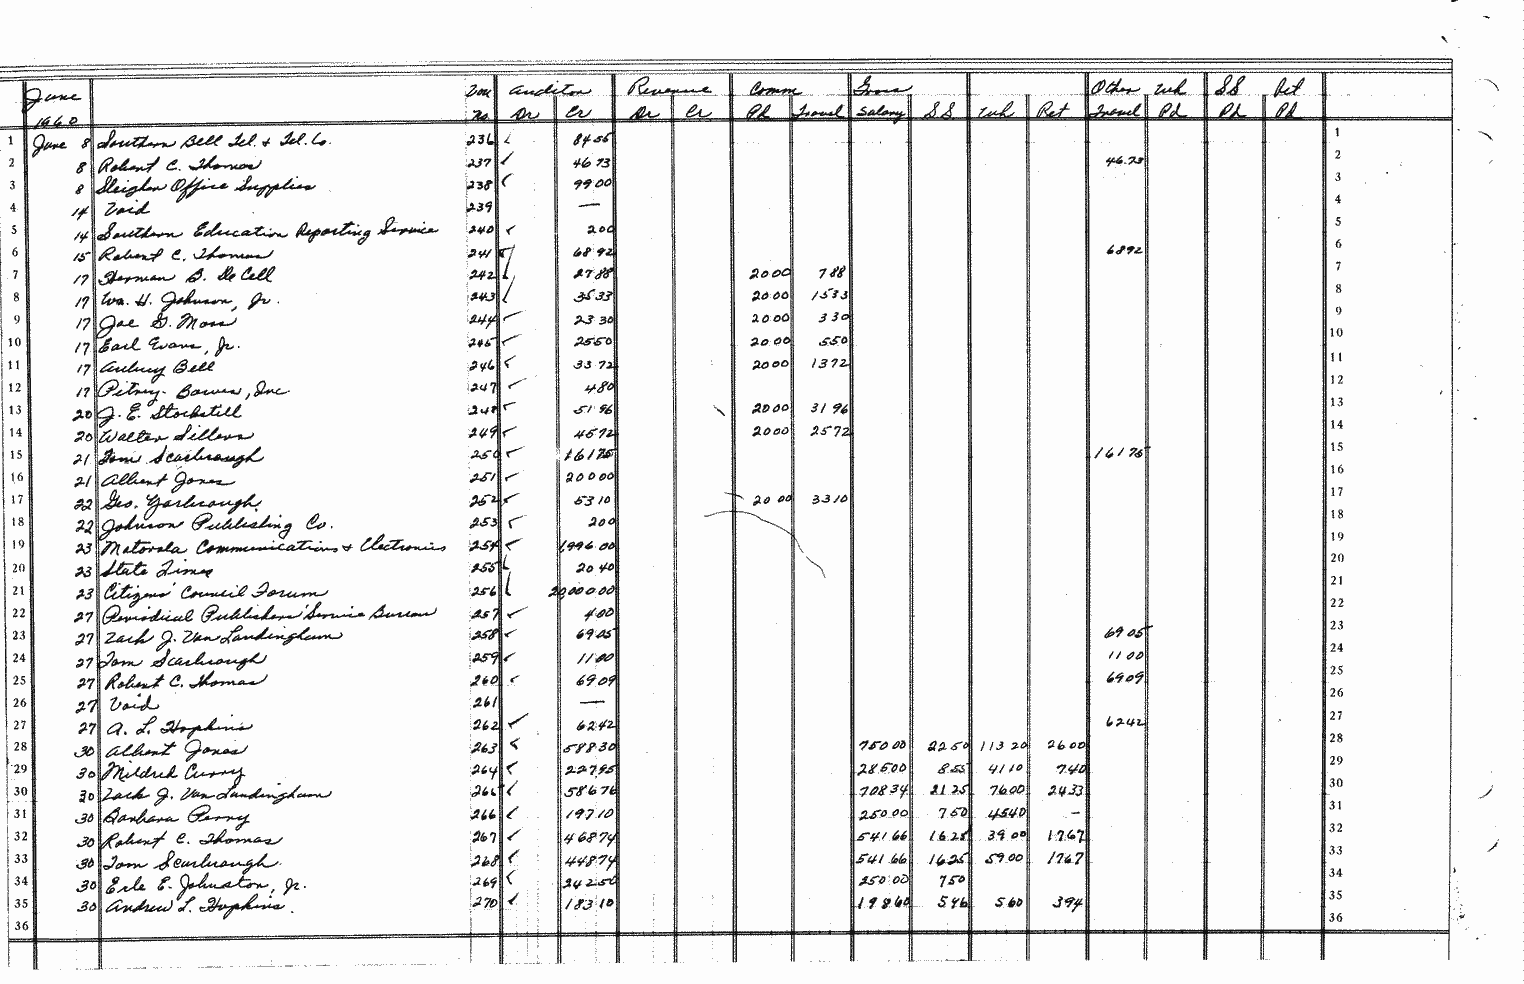 June Vou Auditor Revenue Comm Gross Other Wh SS Ret
1960 No. Dr Cr Dr Cr Pd Travel Salary SS Wh Ret Travel Pd Pd Pd
1 June 8 Southern Bell Tel. & Tel. Co. 236 84 55 1
2 8 Robert C. Thomas 237 46 73 46.73 2
3 8 Sleigher Office Supplies 238 99 00 3
4 14 Void 239 — 4
5 14 Southern Education Reporting Service 240 2 00 5
6 15 Robert C. Thomas 241 68 92 68 92 6
7 17 Herman B. DeCell 242 27 88 20 00 7 88 7
8 17 Wm. H. Johnson, Jr. 243 35 33 20 00 15 33 8
9 17 Joe G. Moss 244 23 30 20 00 3 30 9
10 17 Earl Evans, Jr. 245 25 50 20 00 5 50 10
11 17 Aubrey Bell 246 33 72 20 00 13 72 11
12 17 Pitney-Bowes, Inc 247 4 80 12
13 20 J. E. Stockstill 248 51 96 20 00 31 96 13
14 20 Walter Sillers 249 45 72 20 00 25 72 14
15 21 Tom Scarbrough 250 161 75 161 75 15
16 21 Albert Jones 251 200 00 16
17 22 Geo. Yarbrough 252 53 10 20 00 33 10 17
18 22 Johnson Publishing Co. 253 2 00 18
19 23 Motorola Communications & Electronics 254 1,996.00 19
20 23 State Times 255 20 40 20
21 23 Citizens' Council Forum 256 20,000.00 21
22 27 Periodical Publishers' Service Bureau 257 4 00 22
23 27 Zack J. Van Landingham 258 69 05 69 05 23
24 27 Tom Scarbrough 259 11 00 11 00 24
25 27 Robert C. Thomas 260 69 09 69 09 25
26 27 Void 261 — 26
27 27 A. L. Hopkins 262 62 42 62 42 27
28 30 Albert Jones 263 588 30 750 00 22 50 113 20 26 00 28
29 30 Mildred Curry 264 227.95 285 00 8 55 41 10 7 40 29
30 30 Zack J. Van Landingham 265 586 76 708 34 21 25 76 00 24 33 30
31 30 Barbara Perry 266 197 10 250.00 7 50 45 40 — 31
32 30 Robert C. Thomas 267 468 74 541 66 16 25 39 00 17.67 32
33 30 Tom Scarbrough 268 448 74 541 66 16 25 59 00 17 67 33
34 30 Erle E. Johnston, Jr. 269 242 50 250 00 7 50 34
35 30 Andrew L. Hopkins 270 183 10 198 60 5 96 5 60 3 94 35
36 36